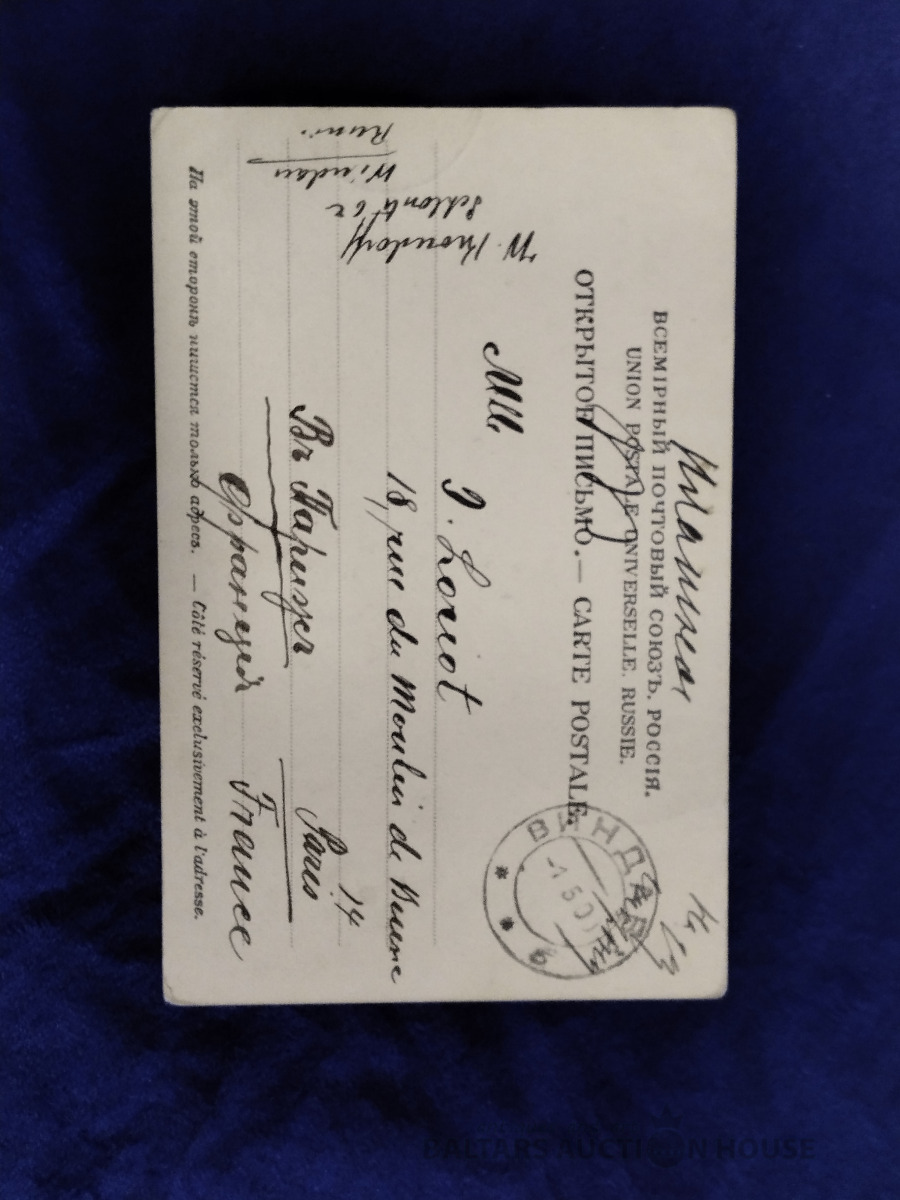 ВСЕМІРНЫЙ ПОЧТОВЫЙ СОЮЗЪ. РОССІЯ.
UNION POSTALE UNIVERSELLE. RUSSIE.
ОТКРЫТОЕ ПИСЬМО. — CARTE POSTALE.
ВИНДАВА
Mlle
J. Loriot
18, rue du Moulin de Beurre
14
Въ Парижъ Paris
Франція France
Windau
На этой сторонѣ пишется только адресъ. — Côté réservé exclusivement à l'adresse.
BALTARS AUCTION HOUSE